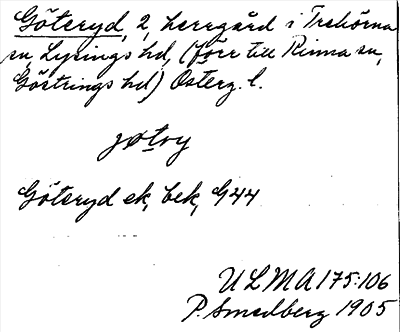 Göteryd, 2, herrgård i Trehörna
sn, Lysings hd, (förr till Rinna sn,
Göstrings hd) Österg. l.
jøtry
Göteryd ek, bek, G44
ULMA 175:106
P. Smedberg 1905